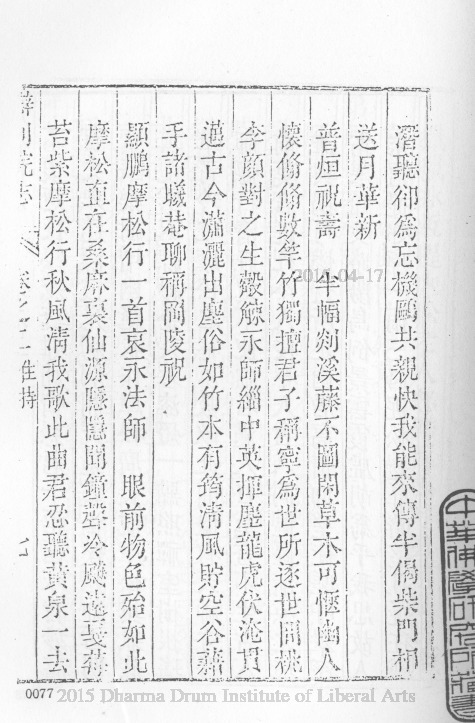 潛聽卻爲忘機鷗共親快我能來傳半偈柴門相
送月華新
普烜祝壽 半幅剡溪藤不圖閑草木可愜幽人
懷脩脩數竿竹獨擅君子稱寧爲世所逐世間桃
李顏對之生觳觫永師緇中英揮麈龍虎伏淹貫
邁古今瀟灑出塵俗如竹本有筠淸風貯空谷藉
手諸暖菴聊稱岡陵祝
顯鵬摩松行一首哀永法師 眼前物色殆如此
摩松直在桑麻裏仙源隱隱聞鐘聲冷颼遠戛莓
苔紫摩松行秋風淸我歌此曲君忍聽黃泉一去
院志 卷之二 住持 七
2015-04-17
中華佛學研究所藏書
0077
2015 Dharma Drum Institute of Liberal Arts